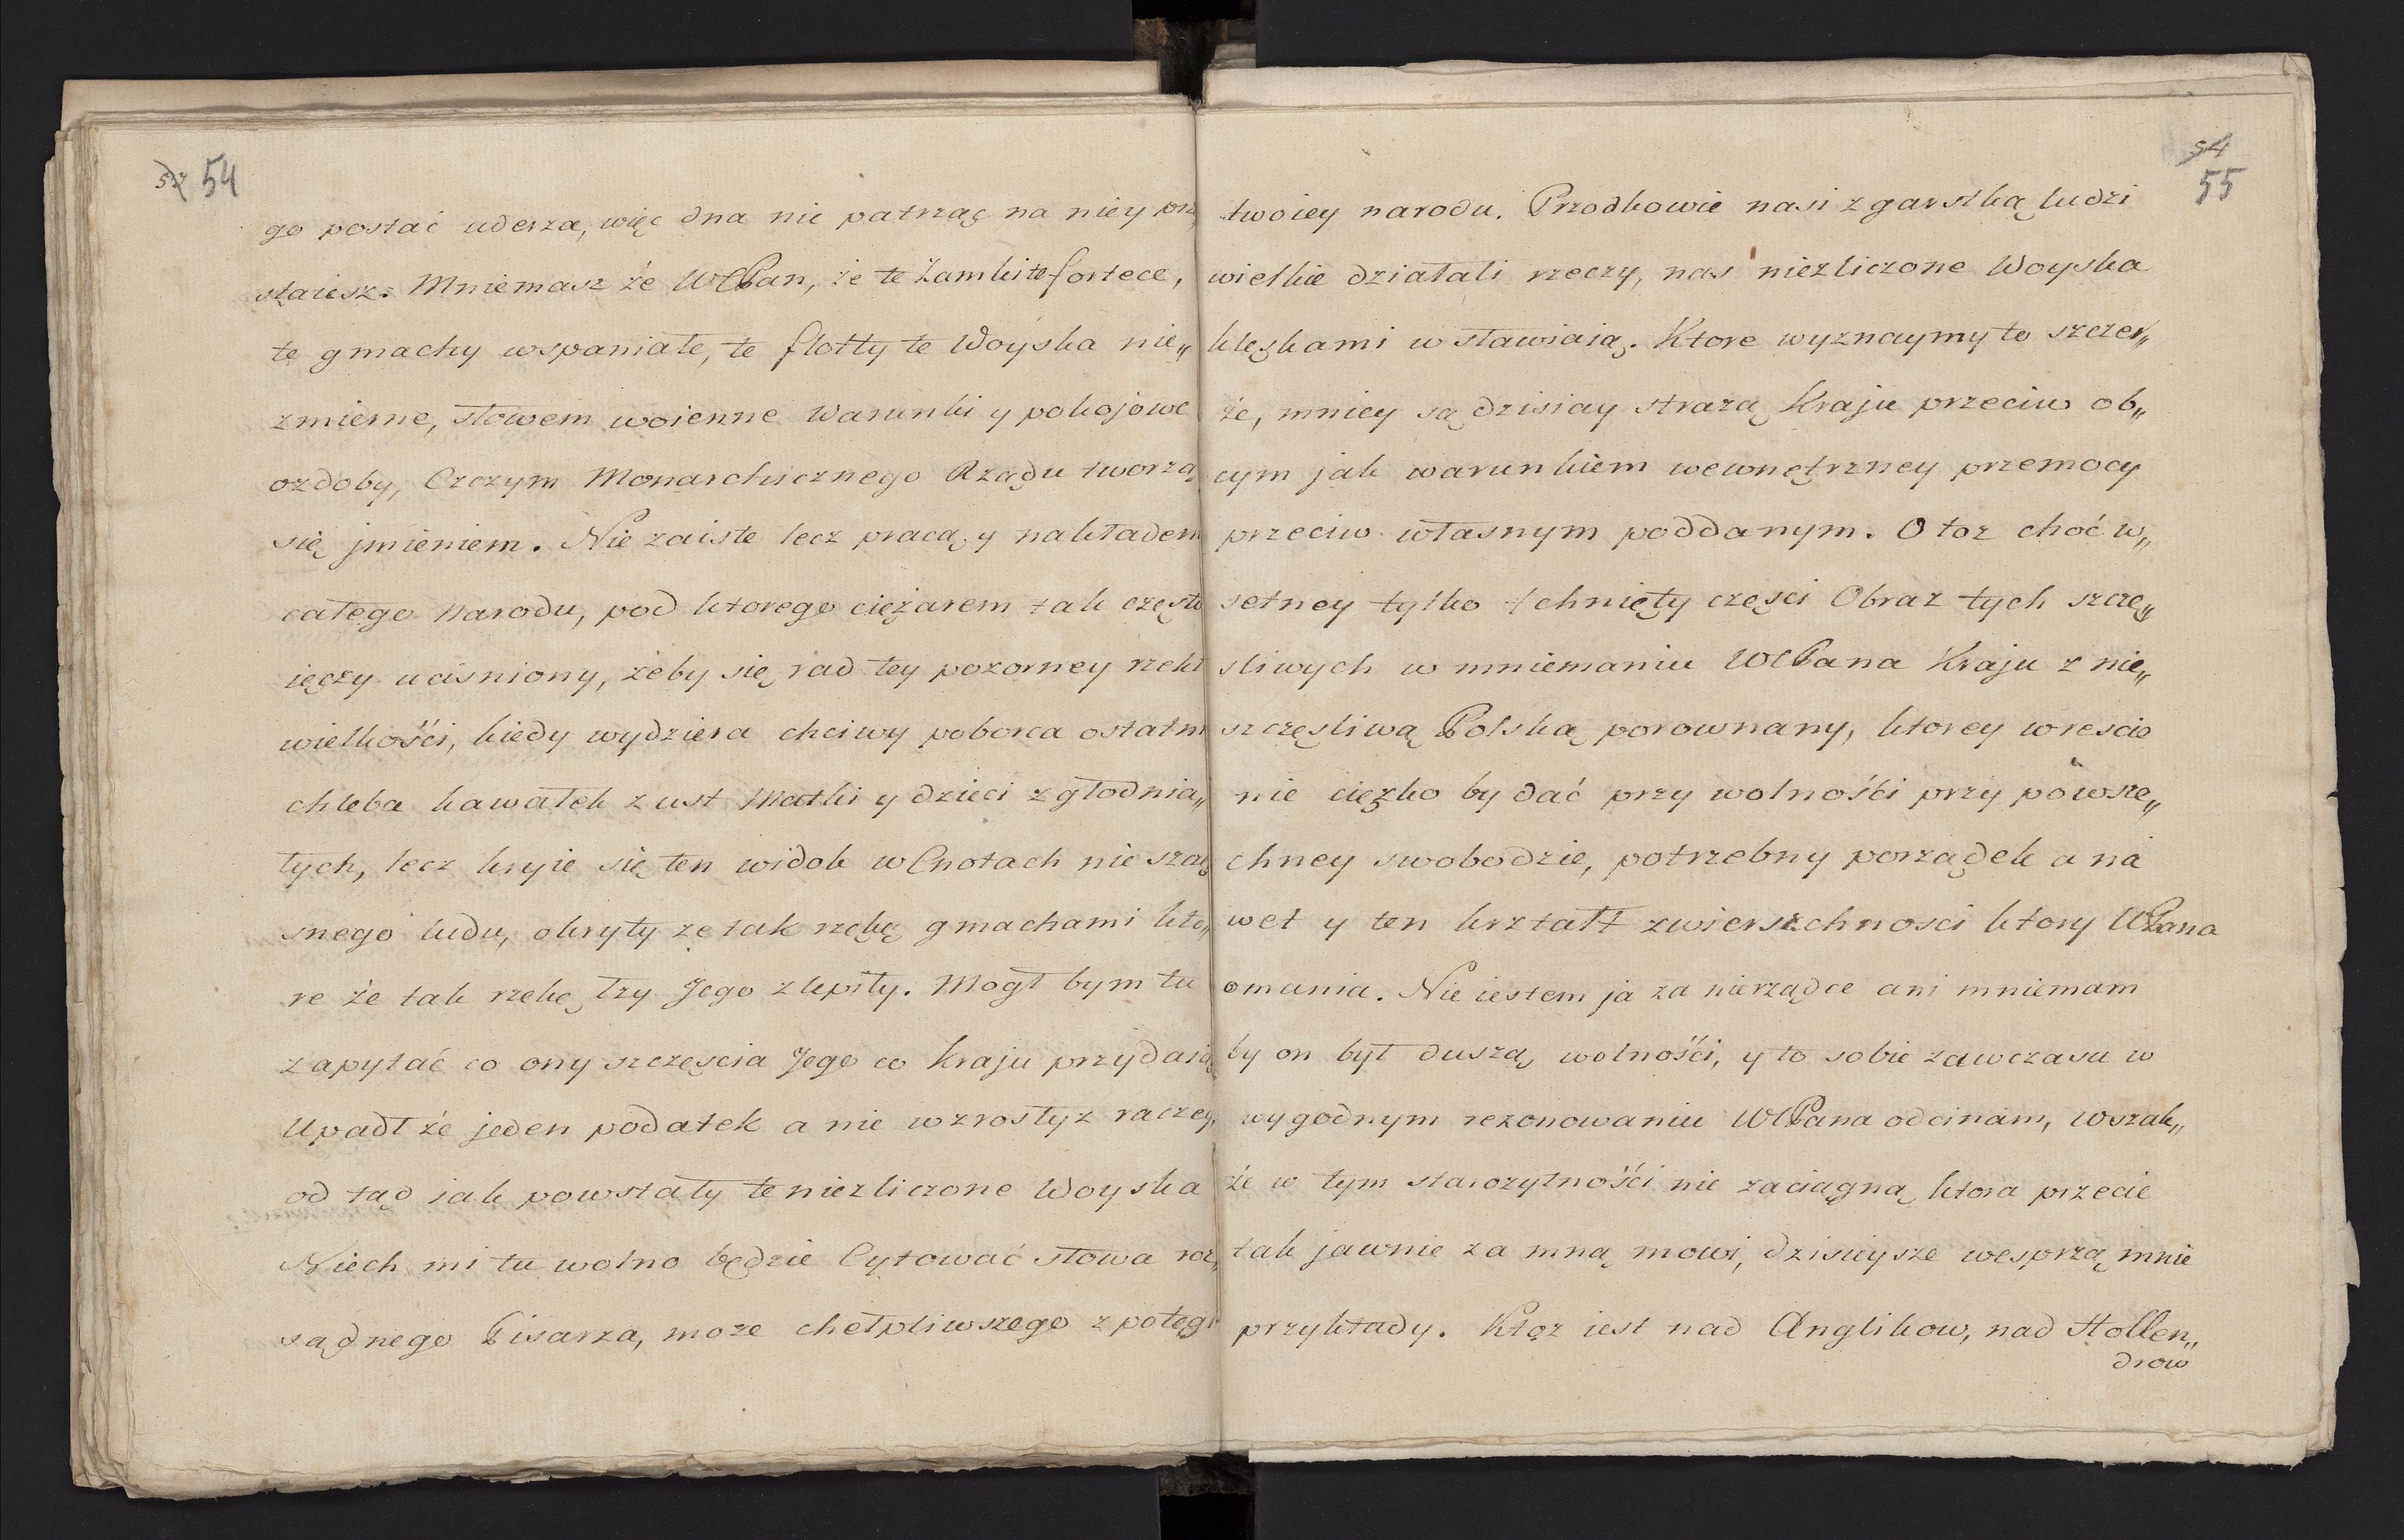 54
go postać uderza, więc dna nie patrząc na niey prz„
staiesz. Mniemasz że WCPan, że te Zamki te fortece,
te gmachy wspaniałe, te flotty te Woyska nie„
zmierne, słowem woienne warunki y pokojowe
ozdoby, Czczym Monarchicznego Rządu tworzą
się jmieniem. Nie zaiste lecz pracą y nakładem
całego Narodu, pod ktorego ciężarem tak często
ięczy uciśniony, żeby się rad tey pozorney rzekł
wielkości, kiedy wydziera chciwy poborca ostatni
chleba kawałek z ust Matki y dzieci zgłodnia„
łych, lecz kryie się ten widok w Cnotach nie szczę
snego ludu, okryty że tak rzekę gmachami kto„
re że tak rzekę łzy Jego zlepiły. Mogł bym tu
zapytać co ony szczęscia Jego co kraju przydaią
Upadł że jeden podatek a nie wzrosłyż raczey,
od tąd iak powstały te niezliczone Woyska
Niech mi tu wolno będzie Cytować słowa roz„
sądnego Pisarza, może chełpliwszego z potęgi
54
55
twoiey narodu. Przodkowie nasi z garstką ludzi
wielkie działali rzeczy, nas niezliczone Woyska
klęskami wsławiaią. Ktore wyznaymy to szczer„
że, mniey są dzisiay strażą Kraju przeciw ob„
cym jak warunkiem wewnętrzney przemocy
przeciw własnym poddanym. O toż choć w„
setney tylko tchnięty częsci Obraz tych szczę„
sliwych w mniemaniu WCPana Kraju z nie„
szczęsliwą Polską porownany, ktorey wrescie
nie cięzko by dać przy wolności przy powsze„
chney swobodzie, potrzebny porządek a na
wet y ten kształt zwierzchnosci ktory WPana
omania. Nie iestem ja za nierządce ani mniemam
by on był duszą wolności, y to sobie zawczasu w
wygodnym rezonowaniu WCPana odcinam, wszak„
że w tym starożytności nie zaciągną ktora przecie
tak jawnie za mną mowi, dzisieysze wesprzą mnie
przykłady. Ktoż iest nad Anglikow, nad Hollen„
drow